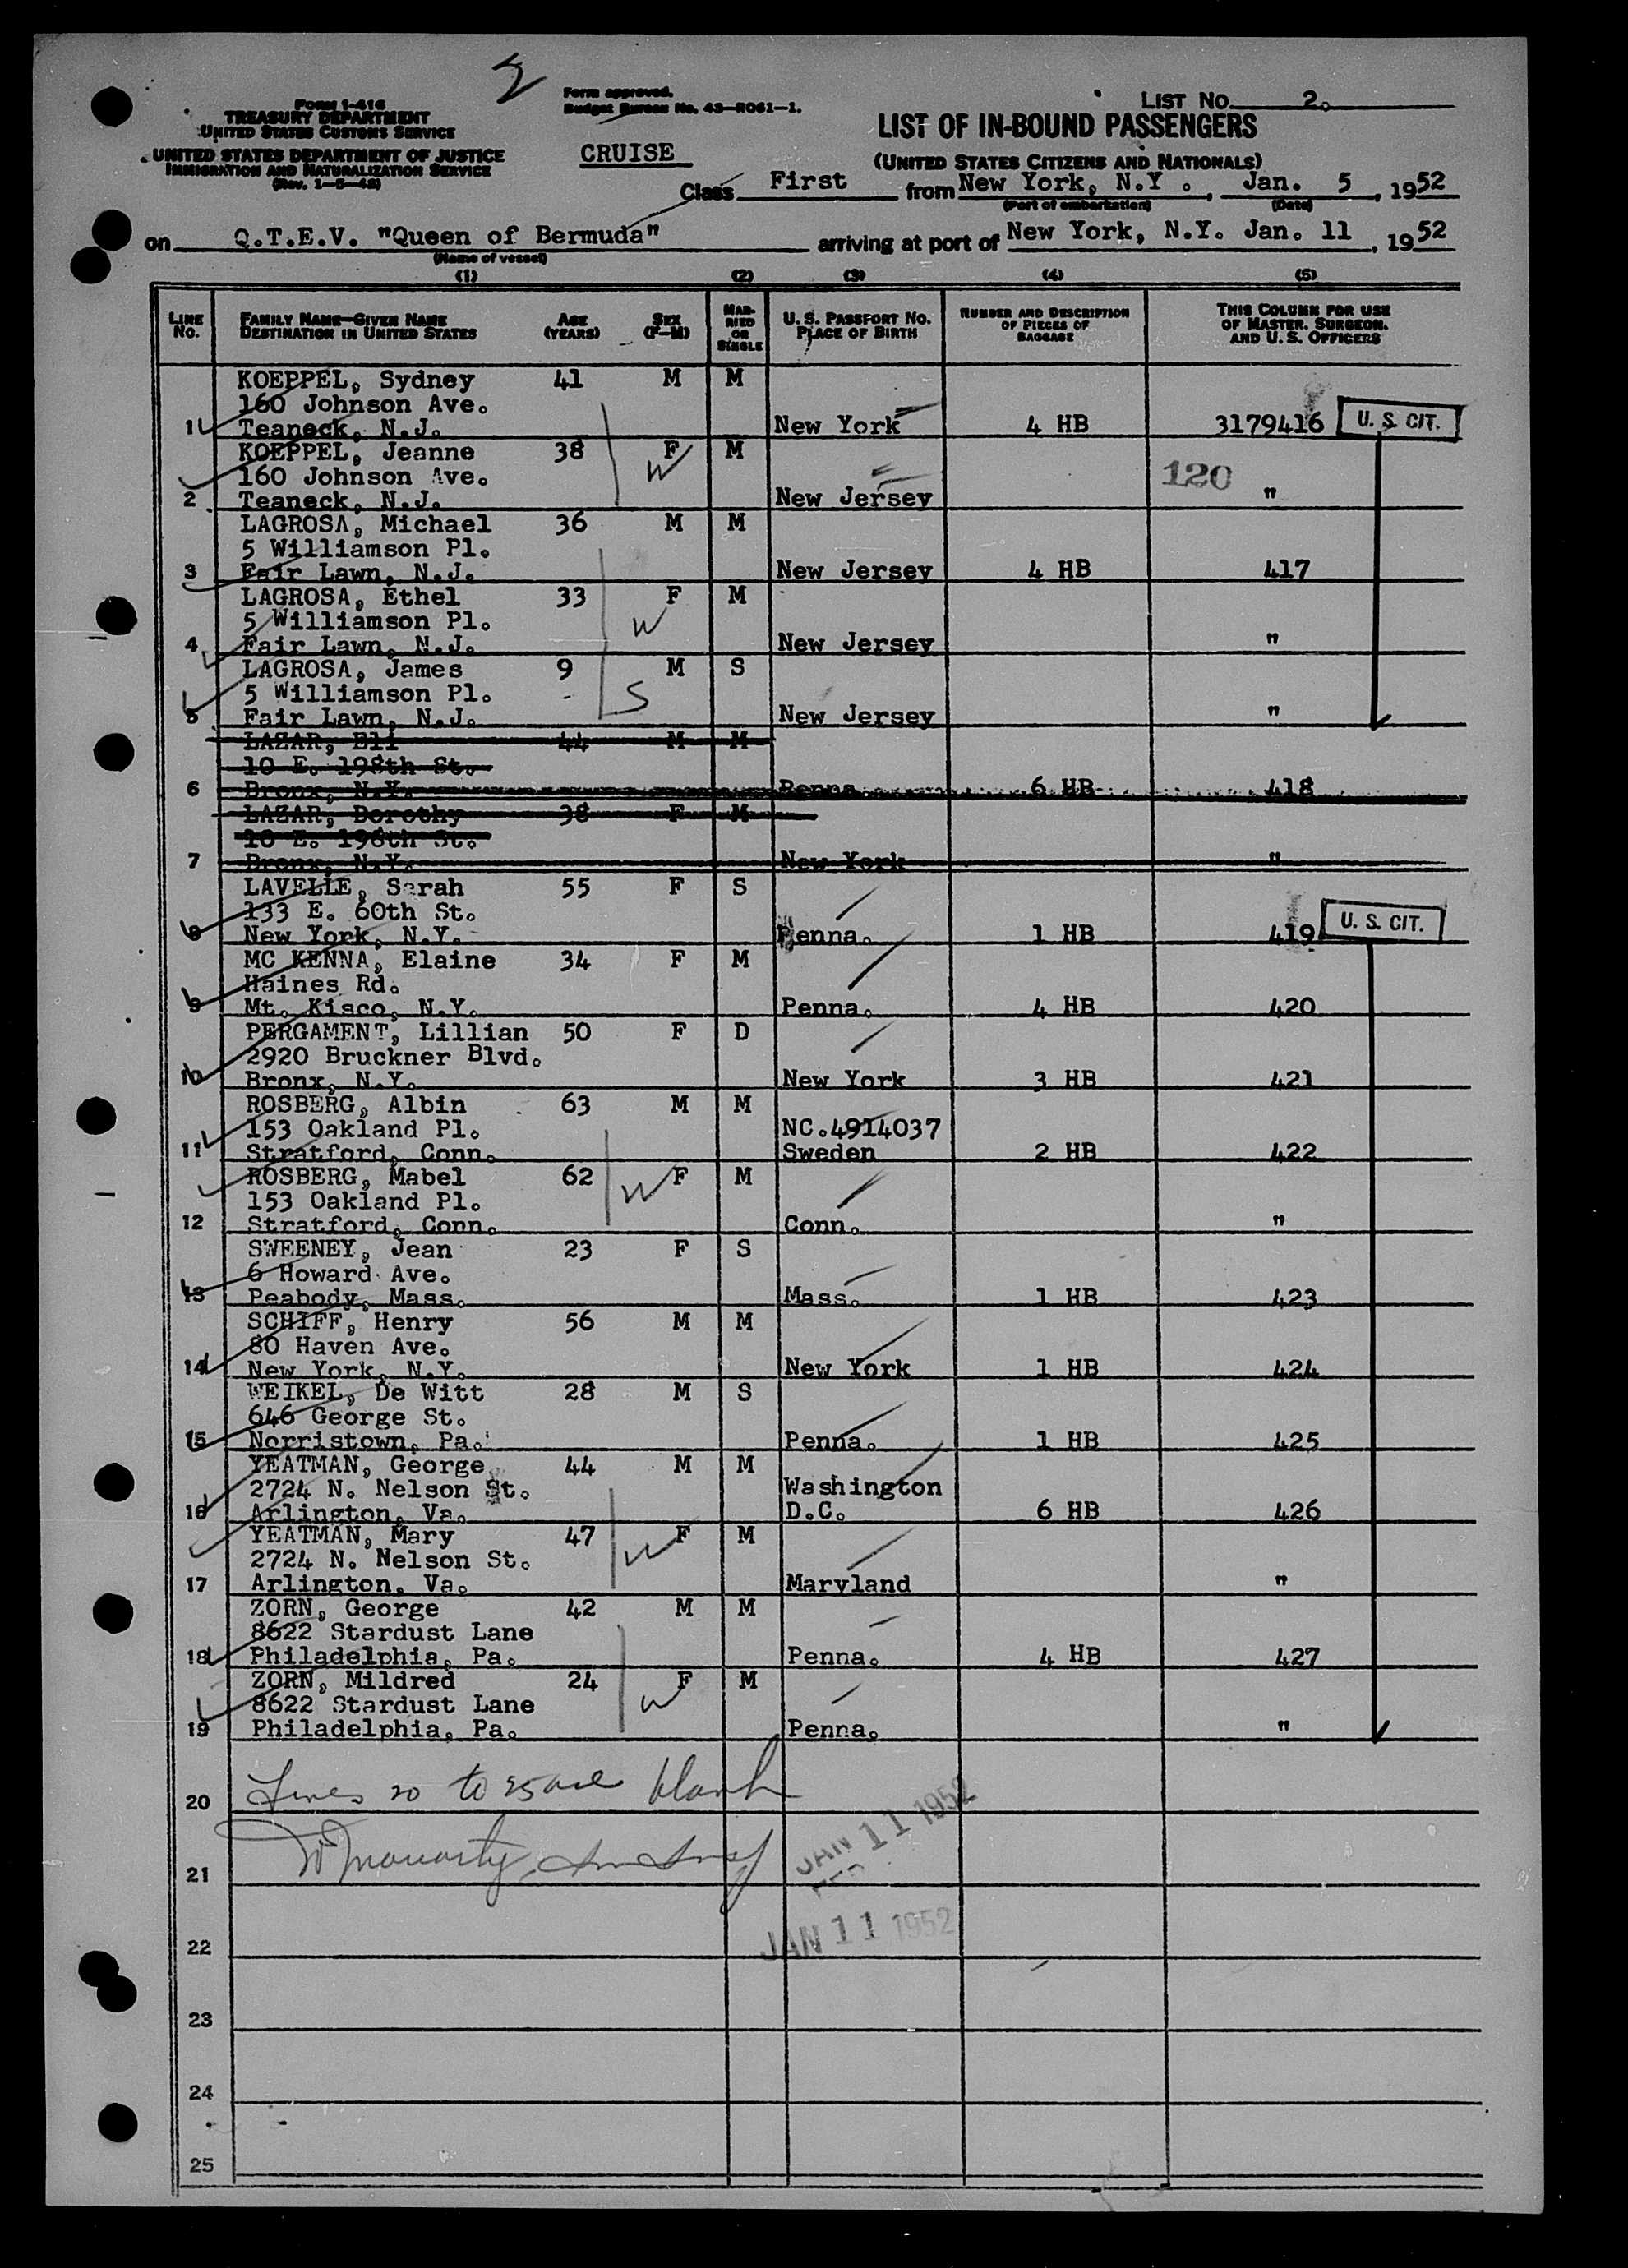 2
Form approved.
Budget Bureau No. 43—R061—1.
LIST No. 2.
Form I-416
TREASURY DEPARTMENT
UNITED STATES CUSTOMS SERVICE
UNITED STATES DEPARTMENT OF JUSTICE
IMMIGRATION AND NATURALIZATION SERVICE
CRUISE
LIST OF IN-BOUND PASSENGERS
(UNITED STATES CITIZENS AND NATIONALS)
Class First from New York, N.Y., Jan. 5, 1952
(Port of embarkation) (Date)
on Q.T.E.V. "Queen of Bermuda" arriving at port of New York, N.Y. Jan. 11, 1952
(Name of vessel)
(1) (2) (3) (4) (5)
LINE No. FAMILY NAME—GIVEN NAME DESTINATION IN UNITED STATES AGE (YEARS) SEX (F—M) MARRIED OR SINGLE U. S. PASSPORT NO. PLACE OF BIRTH NUMBER AND DESCRIPTION OF PIECES OF BAGGAGE THIS COLUMN FOR USE OF MASTER, SURGEON, AND U. S. OFFICERS
KOEPPEL, Sydney 41 M M
160 Johnson Ave.
1 Teaneck, N.J. New York 4 HB 3179416 U. S. CIT.
KOEPPEL, Jeanne 38 F M
W
160 Johnson Ave. 120
2 Teaneck, N.J. New Jersey "
LAGROSA, Michael 36 M M
5 Williamson Pl.
3 Fair Lawn, N.J. New Jersey 4 HB 417
LAGROSA, Ethel 33 F M
5 Williamson Pl. W
4 Fair Lawn, N.J. New Jersey "
LAGROSA, James 9 M S
5 Williamson Pl. S
5 Fair Lawn, N.J. New Jersey "
LAZAR, Eli 44 M M
10 E. 198th St.
6 Bronx, N.Y. Penna. 6 HB 418
LAZAR, Dorothy 38 F M
10 E. 198th St.
7 Bronx, N.Y. New York "
LAVELLE, Sarah 55 F S
133 E. 60th St.
8 New York, N.Y. Penna. 1 HB 419 U. S. CIT.
MC KENNA, Elaine 34 F M
Haines Rd.
9 Mt. Kisco, N.Y. Penna. 4 HB 420
PERGAMENT, Lillian 50 F D
2920 Bruckner Blvd.
10 Bronx, N.Y. New York 3 HB 421
ROSBERG, Albin 63 M M
153 Oakland Pl. NC.4914037
11 Stratford, Conn. Sweden 2 HB 422
ROSBERG, Mabel 62 W F M
153 Oakland Pl.
12 Stratford, Conn. Conn. "
SWEENEY, Jean 23 F S
6 Howard Ave.
13 Peabody, Mass. Mass. 1 HB 423
SCHIFF, Henry 56 M M
80 Haven Ave.
14 New York, N.Y. New York 1 HB 424
WEIKEL, De Witt 28 M S
646 George St.
15 Norristown, Pa. Penna. 1 HB 425
YEATMAN, George 44 M M
2724 N. Nelson St. Washington
16 Arlington, Va. D.C. 6 HB 426
YEATMAN, Mary 47 W F M
2724 N. Nelson St.
17 Arlington, Va. Maryland "
ZORN, George 42 M M
8622 Stardust Lane
18 Philadelphia, Pa. Penna. 4 HB 427
ZORN, Mildred 24 F M
8622 Stardust Lane W
19 Philadelphia, Pa. Penna. "
20 Lines 20 to 25 are blank
JAN 11 1952
21
22 JAN 11 1952
23
24
25